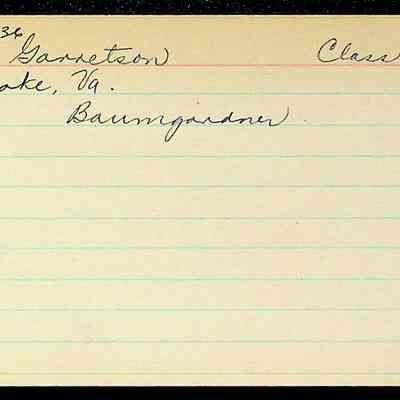 36
Garretson Class
oake, Va.
Baumgardner